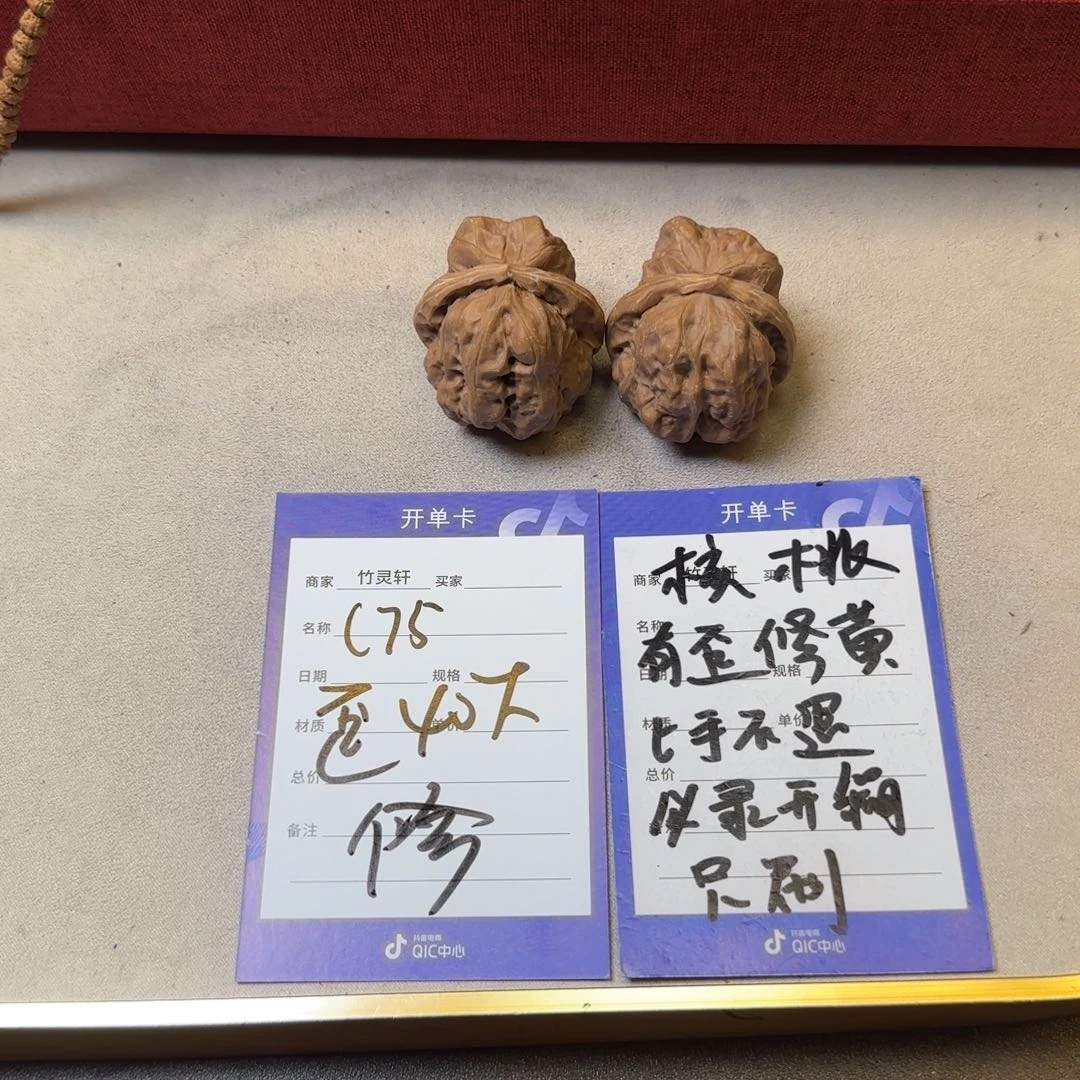 开单卡
商家 竹灵轩 买家
名称 C75
日期 规格
歪 40下
材质 单价
总价
修
备注
抖音电商
QIC中心
开单卡
核桃
商家 竹灵轩 买家
名称
有歪修黄
日期 规格
上手不退
材质 单价
总价
只刷
抖音电商
QIC中心